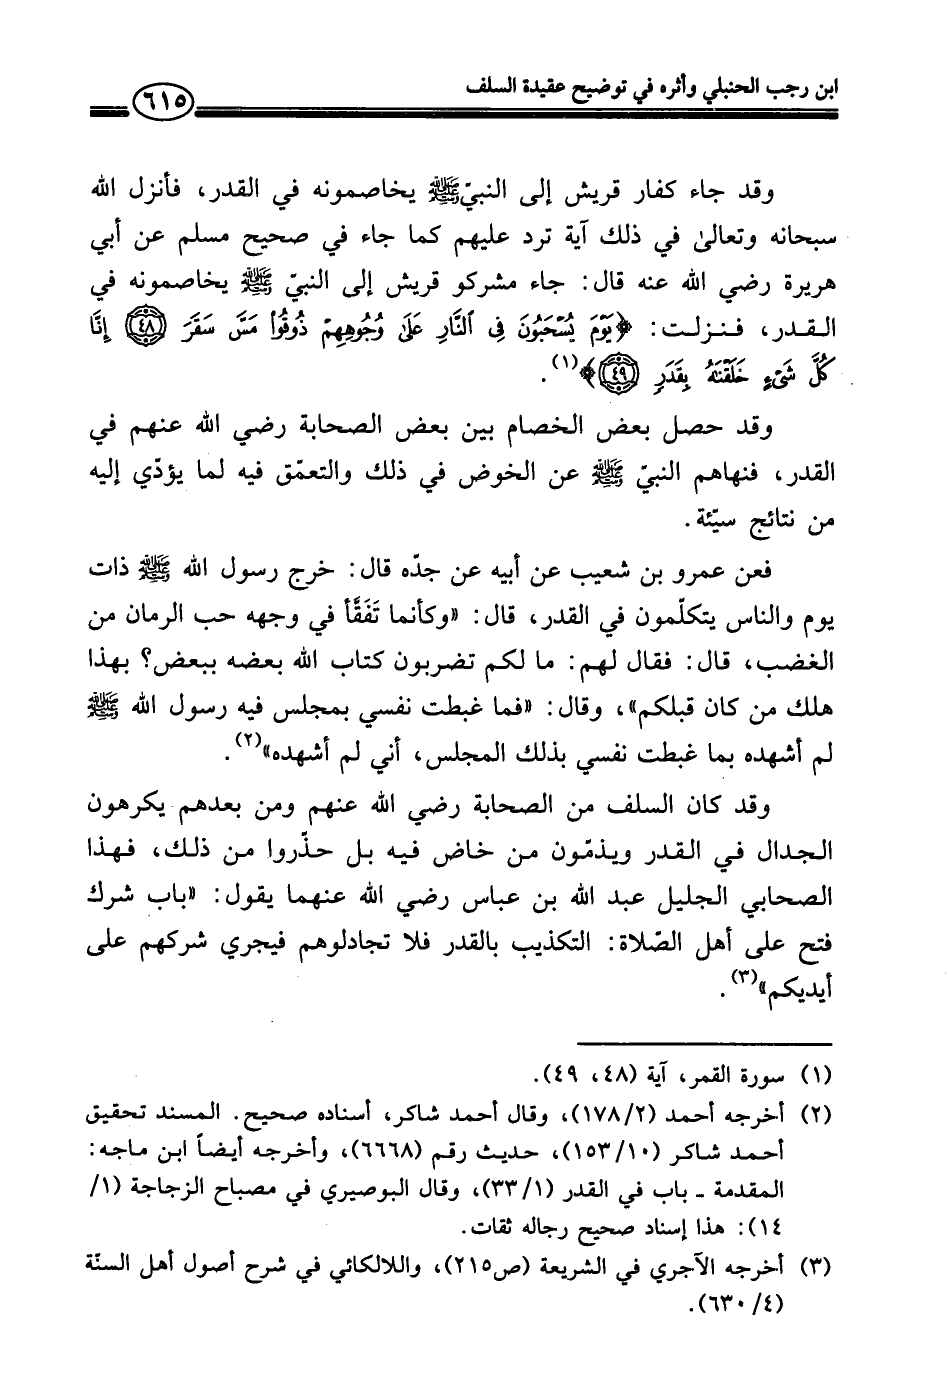 ابن رجب الحنبلي وأثره في توضيح عقيدة السلف
٦١٥
وقد جاء كفار قريش إلى النبيّ ﷺ يخاصمونه في القدر، فأنزل الله
سبحانه وتعالىٰ في ذلك آية ترد عليهم كما جاء في صحيح مسلم عن أبي
هريرة رضي الله عنه قال: جاء مشركو قريش إلى النبيّ ﷺ يخاصمونه في
القدر، فنزلت: ﴿يَوْمَ يُسْحَبُونَ فِى ٱلنَّارِ عَلَىٰ وُجُوهِهِمْ ذُوقُوا۟ مَسَّ سَقَرَ ٤٨ إِنَّا
كُلَّ شَىْءٍ خَلَقْنَٰهُ بِقَدَرٍ ٤٩﴾(١).
وقد حصل بعض الخصام بين بعض الصحابة رضي الله عنهم في
القدر، فنهاهم النبيّ ﷺ عن الخوض في ذلك والتعمّق فيه لما يؤدّي إليه
من نتائج سيّئة.
فعن عمرو بن شعيب عن أبيه عن جدّه قال: خرج رسول الله ﷺ ذات
يوم والناس يتكلّمون في القدر، قال: «وكأنما تَفَقَّأ في وجهه حب الرمان من
الغضب، قال: فقال لهم: ما لكم تضربون كتاب الله بعضه ببعض؟ بهذا
هلك من كان قبلكم»، وقال: «فما غبطت نفسي بمجلس فيه رسول الله ﷺ
لم أشهده بما غبطت نفسي بذلك المجلس، أني لم أشهده»(٢).
وقد كان السلف من الصحابة رضي الله عنهم ومن بعدهم يكرهون
الجدال في القدر ويذمّون من خاض فيه بل حذّروا من ذلك، فهذا
الصحابي الجليل عبد الله بن عباس رضي الله عنهما يقول: «باب شرك
فتح على أهل الصّلاة: التكذيب بالقدر فلا تجادلوهم فيجري شركهم على
أيديكم»(٣).
(١) سورة القمر، آية (٤٨، ٤٩).
(٢) أخرجه أحمد (١٧٨/٢)، وقال أحمد شاكر، أسناده صحيح. المسند تحقيق
أحمد شاكر (١٥٣/١٠)، حديث رقم (٦٦٦٨)، وأخرجه أيضاً ابن ماجه:
المقدمة ـ باب في القدر (٣٣/١)، وقال البوصيري في مصباح الزجاجة (١/
١٤): هذا إسناد صحيح رجاله ثقات.
(٣) أخرجه الآجري في الشريعة (ص٢١٥)، واللالكائي في شرح أصول أهل السنّة
(٦٣٠/٤).